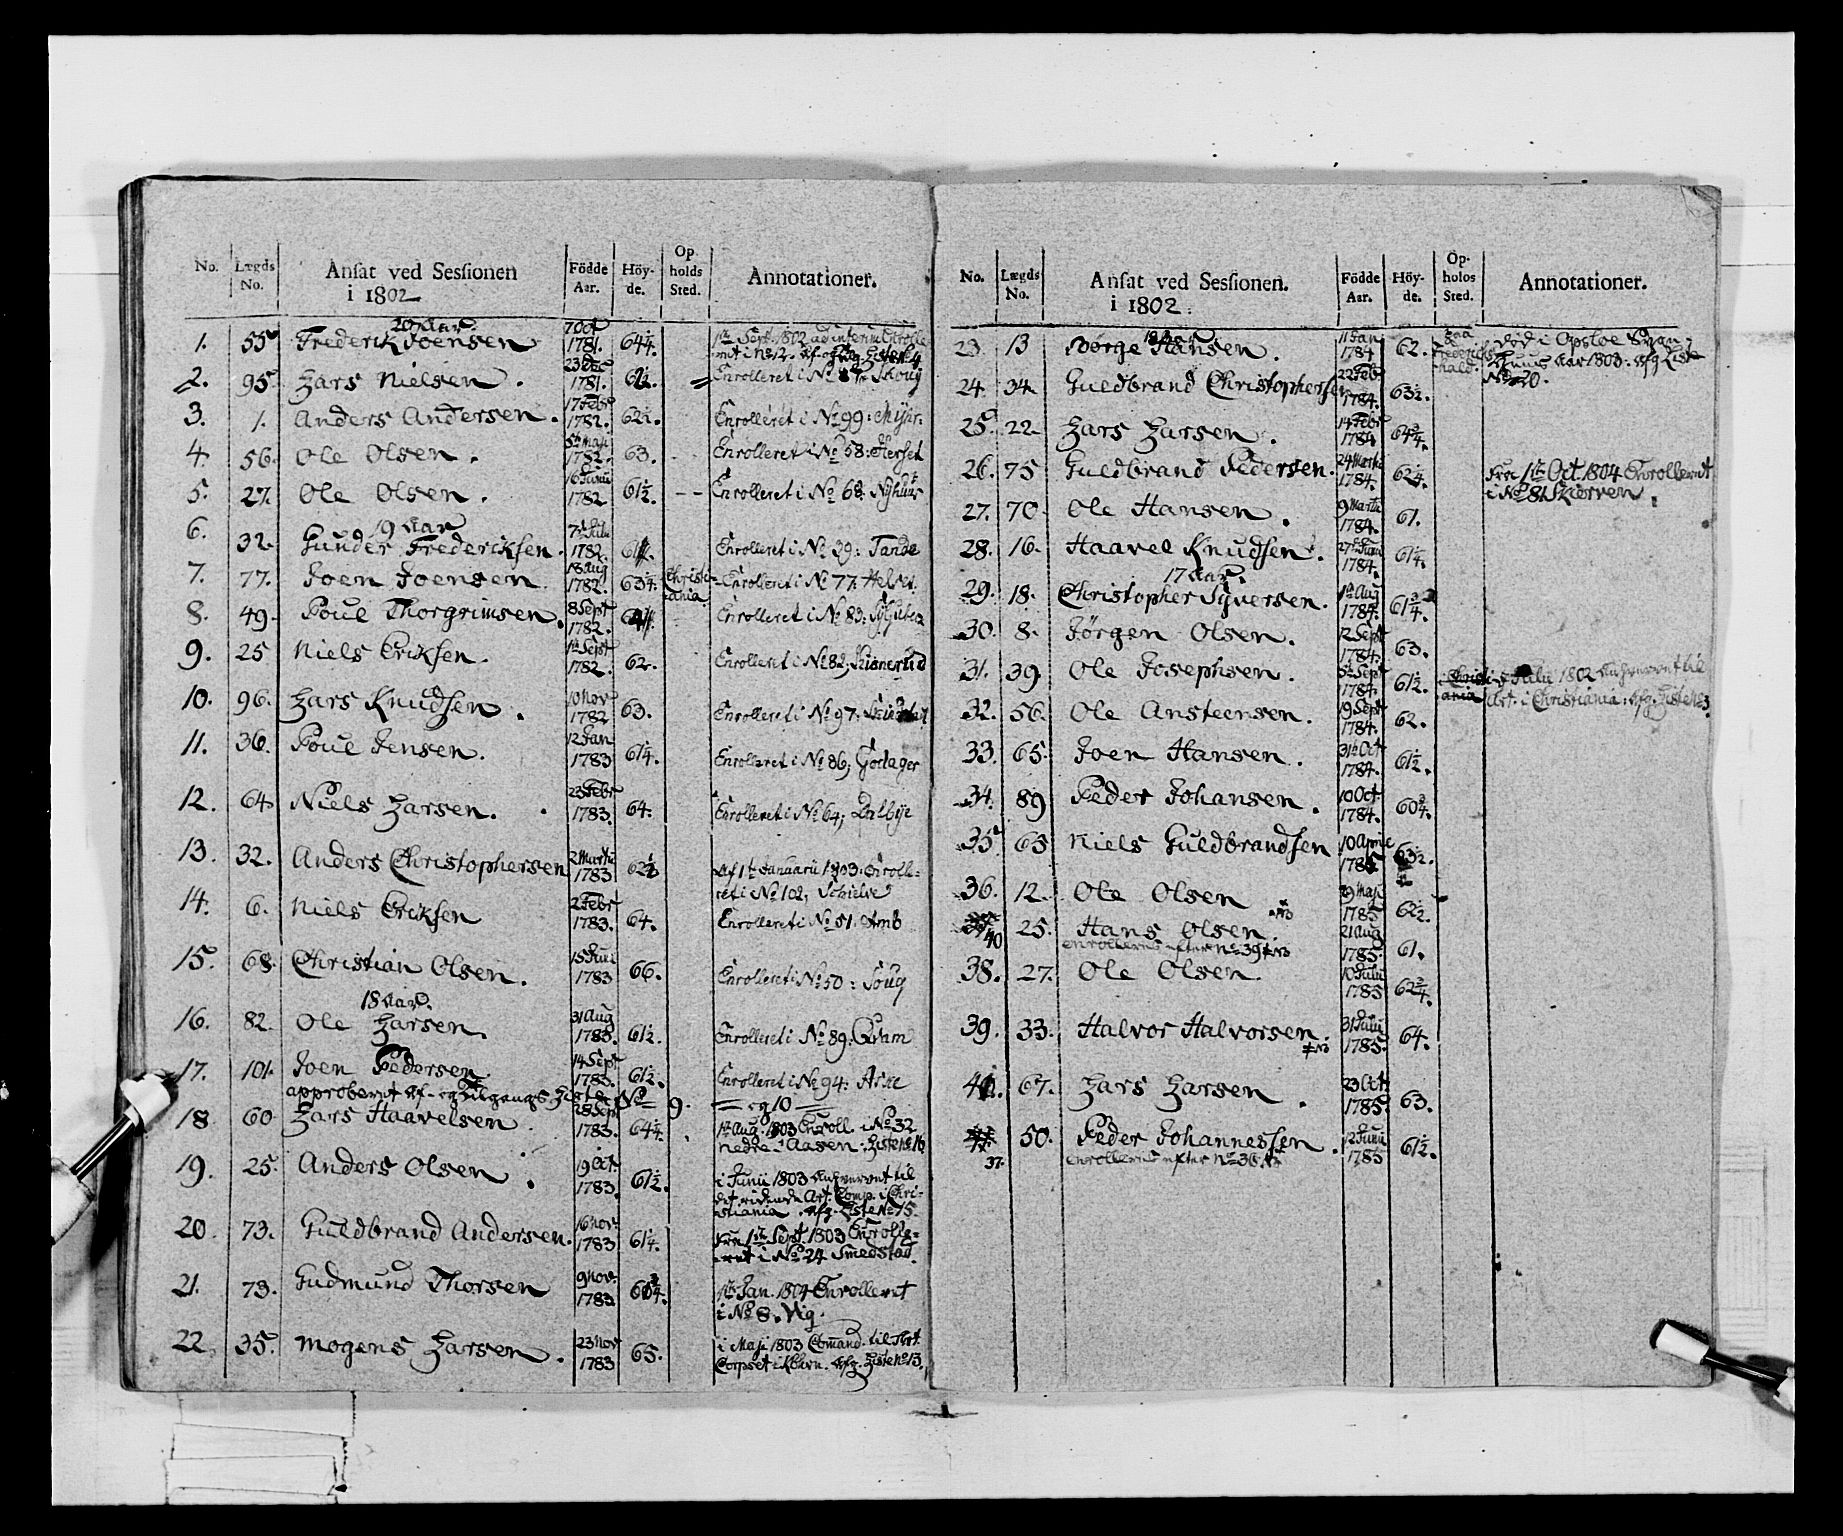 No. Lægds No. Ansat ved Sessionen i 1802 Födde Aar. Höyde. Opholds Sted. Annotationer.
20 Aar.
1. 55 Frederik Joensen 7 Oct 1781. 64¼. 1te Sept. 1802 ad interim Enrolleret i No 12. Afg. Liste No 4
2. 95 Lars Nielsen. 23 Dec 1781. 61½. Enrolleret i No 87 Skoug
3. 1. Anders Andersen. 17 Febr 1782. 62½. Enrolleret i No 99: Myhr.
4. 56. Ole Olsen. 5te Maji 1782. 63. Enrolleret i No 58: Herset
5. 27. Ole Olsen. 16 Junii 1782 61½. Enrolleret i No 68: Nyhuus
19 Aar
6. 32. Gunder Fredericksen. 7de Julii 1782. Enrolleret i No 39: Tande
7. 77. Joen Joensen. 18 Aug 1782. 63¼. Christiania. Enrolleret i No 77.
8. 49. Poul Thorgrimsen. 8 Sept 1782. Enrolleret i No 83:
9. 25 Niels Eriksen. 1te Sept 1782. 62. Enrolleret i No 82,
10. 96. Lars Knudsen. 10 Nov 1782 63. Enrolleret i No 97:
11. 36. Poul Jensen. 12 Jan 1783 61¼. Enrolleret i No 86; Godager
12. 64 Niels Larsen. 23 Febr 1783. 64. Enrolleret i No 64; Dalbye
13. 32. Anders Christophersen 2 Martii 1783 62½ Af 1te Januarii 1803 Enrolleret i No 102,
14. 6. Niels Eriksen 2 Febr 1783. 64. Enrolleret i No 51.
15. 68. Christian Olsen. 15 Junii 1783 66. Enrolleret i No 50:
18 Aar.
16. 82. Ole Larsen. 31 Aug 1783. 61½. Enrolleret i No 89: Qvam
17. 101. Joen Pedersen. 14 Sept 1783. 61½. Enrolleret i No 94:
approberet Af- og Tilgangs Liste No 9. og 10
18 60 Lars Haavelsen. 28 Sept 1783. 64¼. 1te Aug. 1803 Enroll. i No 32 nedre Aasen: Liste No 16
19. 25. Anders Olsen 19 Oct 1783. 61½. i Junii 1803 anhvervet til det ridende Art. Comp. i Christiania. Afg. Liste No 15.
20. 73. Guldbrand Andersen. 16 Nov. 1783 61¼. Fra 1te Sept. 1803 Enrolleret i No 24 Smedstad.
21. 73. Gudmund Thorsen 9 Nov. 1783 60¾. 1te Jan. 1804 Enrolleret i No 8. Vig.
22. 35. Mogens Larsen. 23 Nov 1783 65. i Maji 1803 Comand. til Art. Corpset i Kbhvn. Afg. Liste No 13.
No. Lægds No. Ansat ved Sessionen. i 1802. Födde Aar. Höyde. Opholds Sted. Annotationer.
18 Aar
23. 13 Børge Hansen. 11 Jan 1784 62. paa Fredericks hald. død i Opsloe Svanehuus Aar 1803. Afg Liste No 20.
24. 34. Guldbrand Christophersen 22 Febr 1784. 63½.
25. 22. Lars Larsen. 14 Febr 1784 64¾.
26. 75 Guldbrand Pedersen. 24 Martii 1784. 62¼. Fra 1te Oct. 1804 Enrolleret i No 81 Skierven.
27. 70. Ole Hansen. 9 Martii 1784. 61.
28. 16. Haavel Knudsen. 27de Junii 1784. 61¼.
17 Aar.
29. 18. Christopher Syversen. 1te Aug 1784. 61¾.
30. 8. Jørgen Olsen. 12 Sept 1784. 63.
31. 39. Ole Josephsen. 5te Sept 1784. 61½. Christiania i Julii 1802 anhvervet til Art. i Christiania. Afg. Liste No 3.
32. 56. Ole Ansteensen. 19 Sept 1784. 62.
33. 65. Joen Hansen. 31te Oct 1784. 61½.
34. 89 Peder Johansen. 10 Oct. 1784. 60¾.
35. 63 Niels Guldbrandsen 10 April 1785 63½.
36. 12. Ole Olsen 29 Maji 1785 62½.
40 25. Hans Olsen. 21 Aug 1785. 61.
enrolleres efter No 39
38. 27. Ole Olsen. 10 Julii 1785 62¾.
39. 33. Halvor Halvorsen. 31 Julii 1785. 64.
41. 67. Lars Larsen. 23 Oct. 1785. 63.
37. 50. Peder Johannessen. 12 Junii 1785 61½.
enrolleres efter No 36.